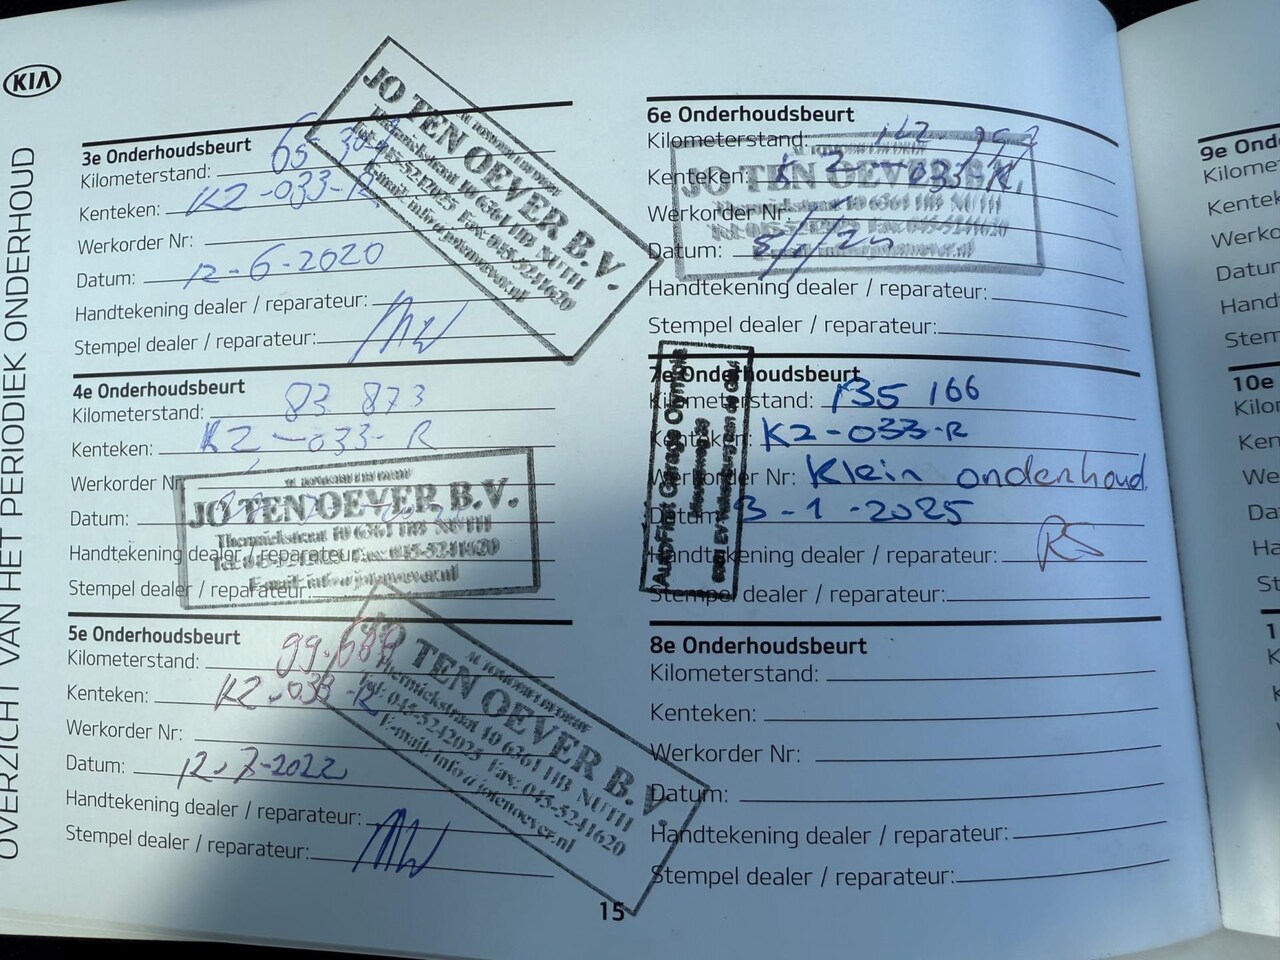 KIA
OVERZICHT VAN HET PERIODIEK ONDERHOUD
3e Onderhoudsbeurt
Kilometerstand: 65
Kenteken: K2-033-R
Werkorder Nr:
Datum: 12-6-2020
Handtekening dealer / reparateur:
Stempel dealer / reparateur:
JO TEN OEVER B.V.
Thermiekstraat 10 6361 HB NUTH
Tel: 045-5242025 Fax: 045-5241620
E-mail: info@jotenoever.nl
4e Onderhoudsbeurt
Kilometerstand: 83 873
Kenteken: K2-033-R
Werkorder Nr
Datum:
Handtekening dealer / reparateur:
Stempel dealer / reparateur:
JO TEN OEVER B.V.
Thermiekstraat 10 6361 HB NUTH
Tel: 045-5242025 Fax: 045-5241620
E-mail: info@jotenoever.nl
5e Onderhoudsbeurt
Kilometerstand: 99.688
Kenteken: K2-033-R
Werkorder Nr:
Datum: 12-7-2022
Handtekening dealer / reparateur:
Stempel dealer / reparateur:
AUTOMOBIELBEDRIJF
JO TEN OEVER B.V.
Thermiekstraat 10 6361 HB NUTH
Tel: 045-5242025 Fax: 045-5241620
E-mail: info@jotenoever.nl
6e Onderhoudsbeurt
Kilometerstand:
Kenteken: K2-033-R
Werkorder Nr:
Datum:
Handtekening dealer / reparateur:
Stempel dealer / reparateur:
JO TEN OEVER B.V.
Thermiekstraat 10 6361 HB NUTH
7e Onderhoudsbeurt
Kilometerstand: 135 166
Kenteken: K2-033-R
Werkorder Nr: Klein onderhoud.
Datum: 3-1-2025
Handtekening dealer / reparateur: RS
Stempel dealer / reparateur:
Garage
8e Onderhoudsbeurt
Kilometerstand:
Kenteken:
Werkorder Nr:
Datum:
Handtekening dealer / reparateur:
Stempel dealer / reparateur:
15
9e Ond
Kilome
Kentek
Werko
Datur
Hand
Stem
10e
Kilor
Ken
We
Da
Ha
St
1
K